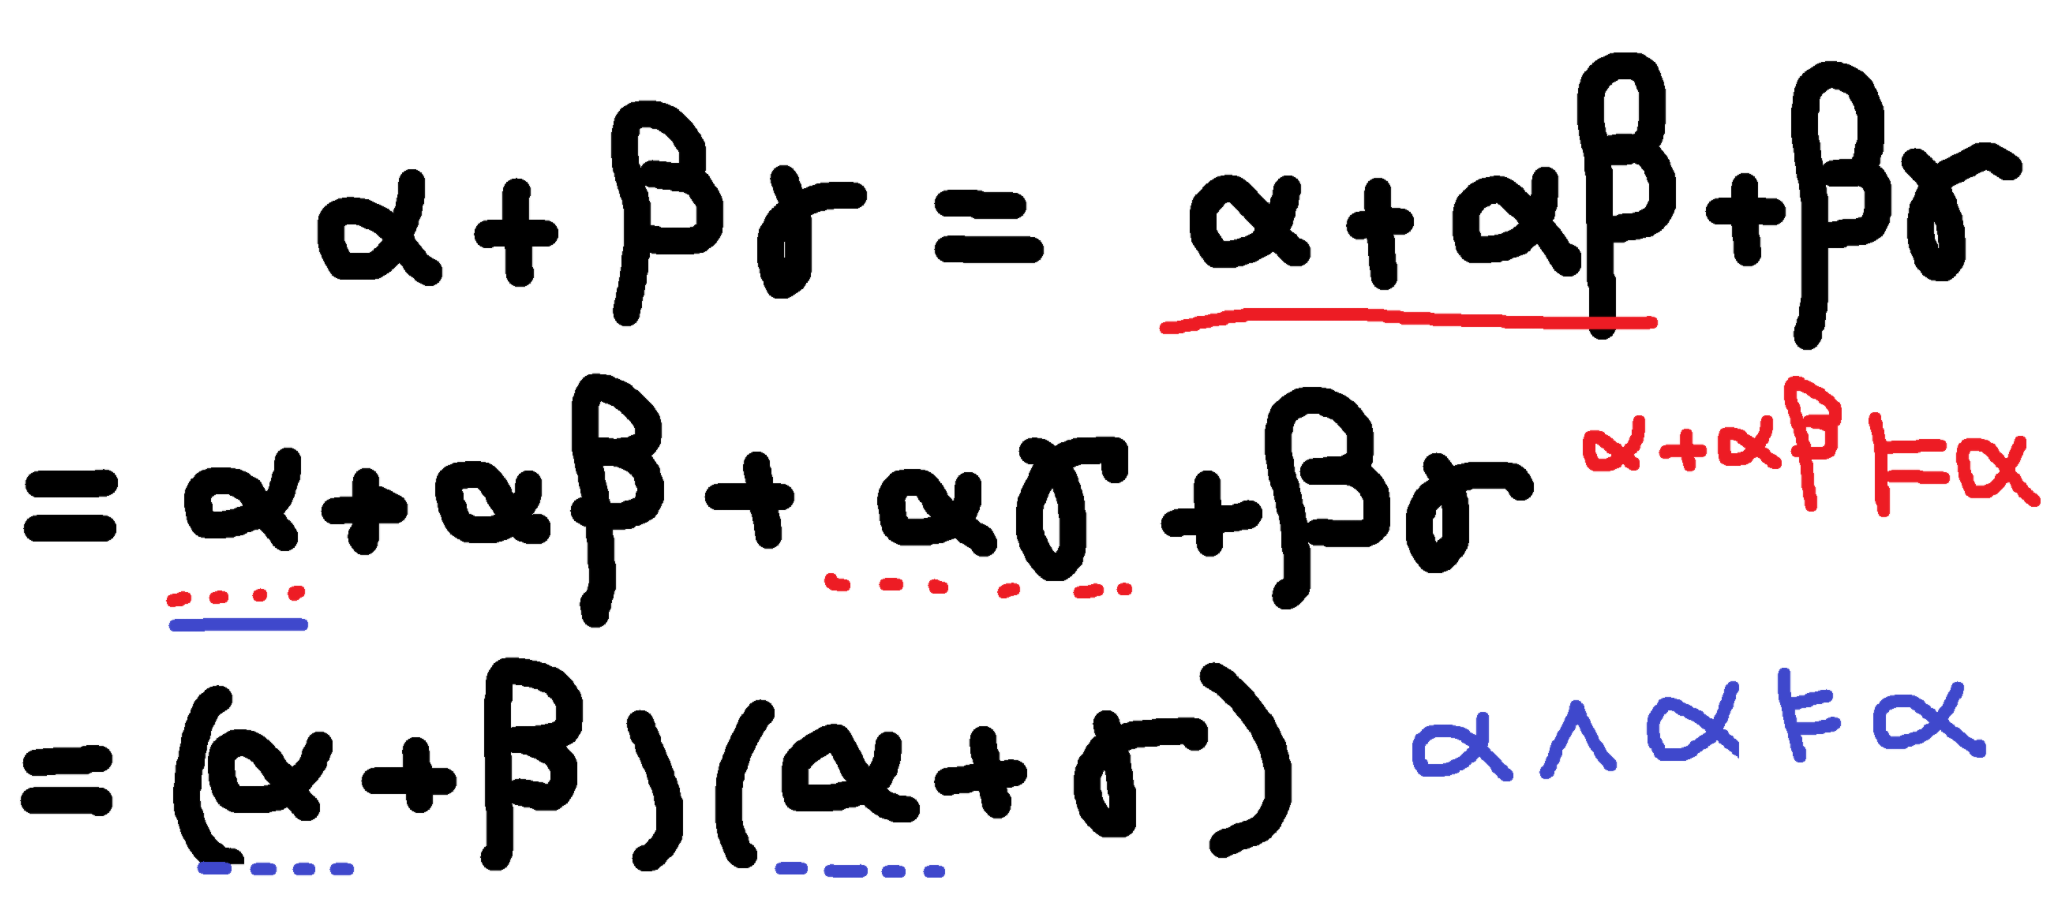 α+βγ = α+αβ+βγ
= α+αβ+αγ+βγ α+αβ⊨α
= (α+β)(α+γ) α∧α⊨α